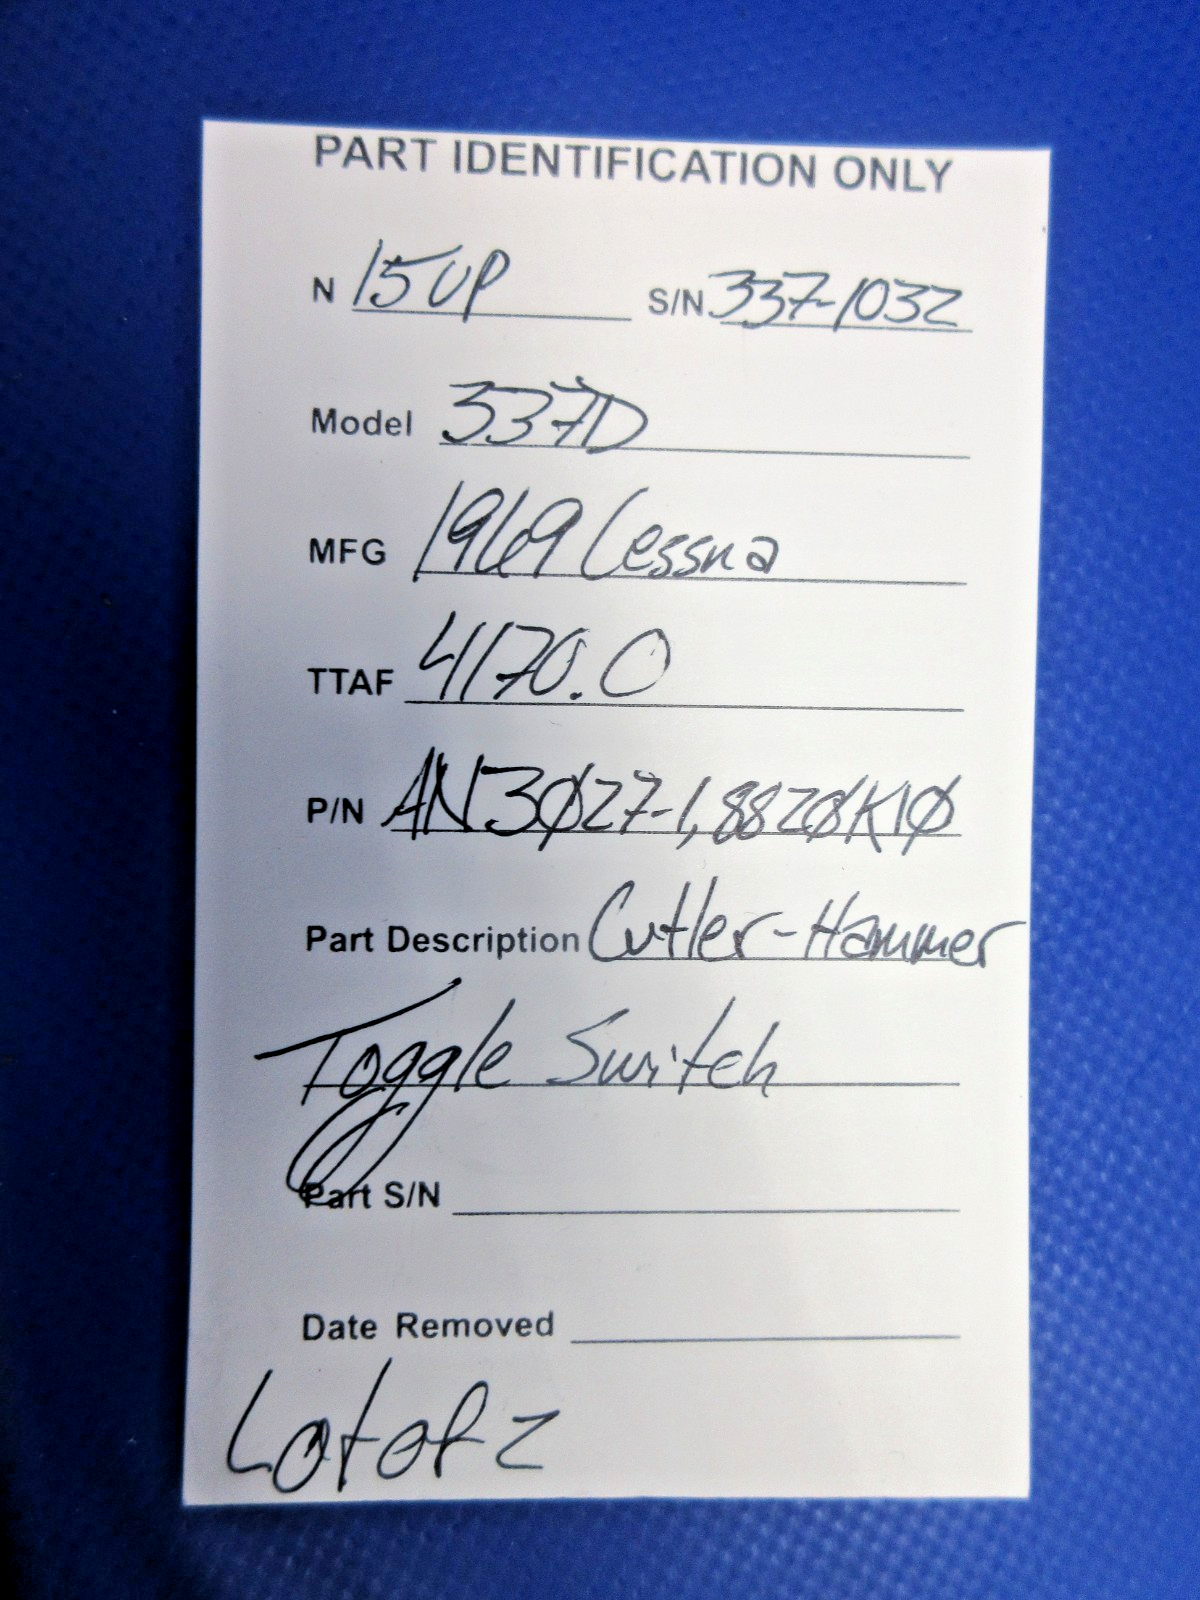 PART IDENTIFICATION ONLY
N 150P S/N 337-1032
Model 337D
MFG 1969 Cessna
TTAF 4170.0
P/N AN3Ø27-1, 882ØK1Ø
Part Description Cutler-Hammer
Toggle Switch
Part S/N
Date Removed
Lot of 2